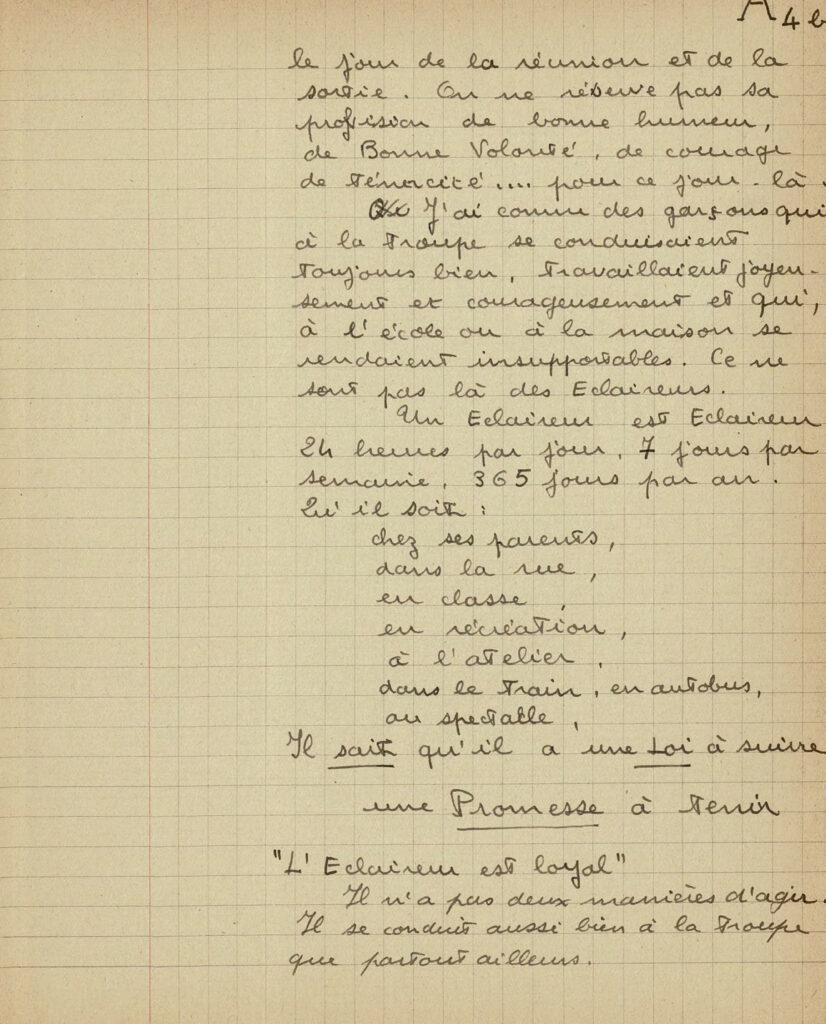 A 4 b
le jour de la réunion et de la
sortie. On ne réserve pas sa
profision de bonne humeur,
de Bonne Volonté, de courage
de ténacité.... pour ce jour-là.
J'ai connu des garçons qui
à la troupe se conduisaient
toujours bien, travaillaient joyeu-
sement et courageusement et qui,
à l'école ou à la maison se
rendaient insupportables. Ce ne
sont pas là des Eclaireurs.
Un Eclaireur est Eclaireur
24 heures par jour, 7 jours par
semaine, 365 jours par an.
Qu'il soit :
chez ses parents,
dans la rue,
en classe,
en récréation,
à l'atelier,
dans le train, en autobus,
au spectacle,
Il sait qu'il a une Loi à suivre
une Promesse à tenir
"L'Eclaireur est loyal"
Il n'a pas deux manières d'agir.
Il se conduit aussi bien à la troupe
que partout ailleurs.